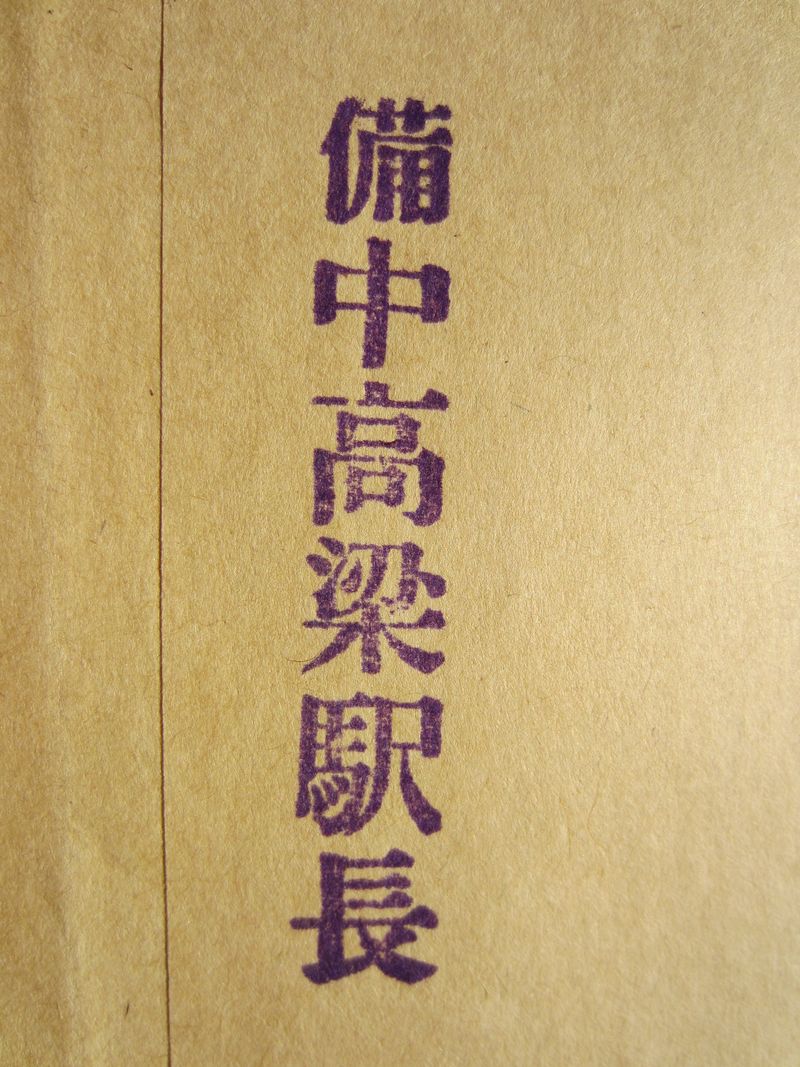 備中高梁駅長